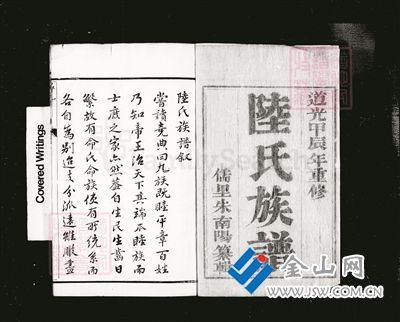 道光甲辰年重修
陸氏族譜
儒里朱南陽纂輯
陸氏族譜叙
嘗讀堯典曰九族既睦平章百姓
乃知帝王治天下其端不睦族而
士庶之家亦然蓋自生民生當日
繁故有命氏命族僅有所統系而
各自為別迨支分派遠雖服盡
Covered Writings
金山网
WWW.JSW.COM.CN